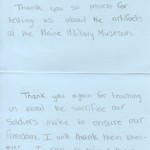 Thank you so much for
telling us about the artifacts
at the Maine Military Museum
Thank you again for teaching
us about the sacrifice our
soldiers make to ensure our
freedom. I will thank them when
ever I